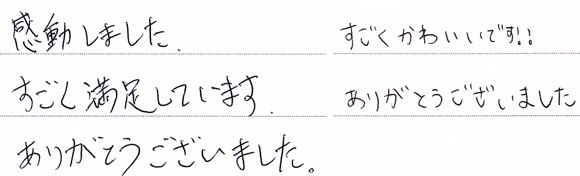 感動しました.
すごく満足しています.
ありがとうございました。
すごくかわいいです!!
ありがとうございました